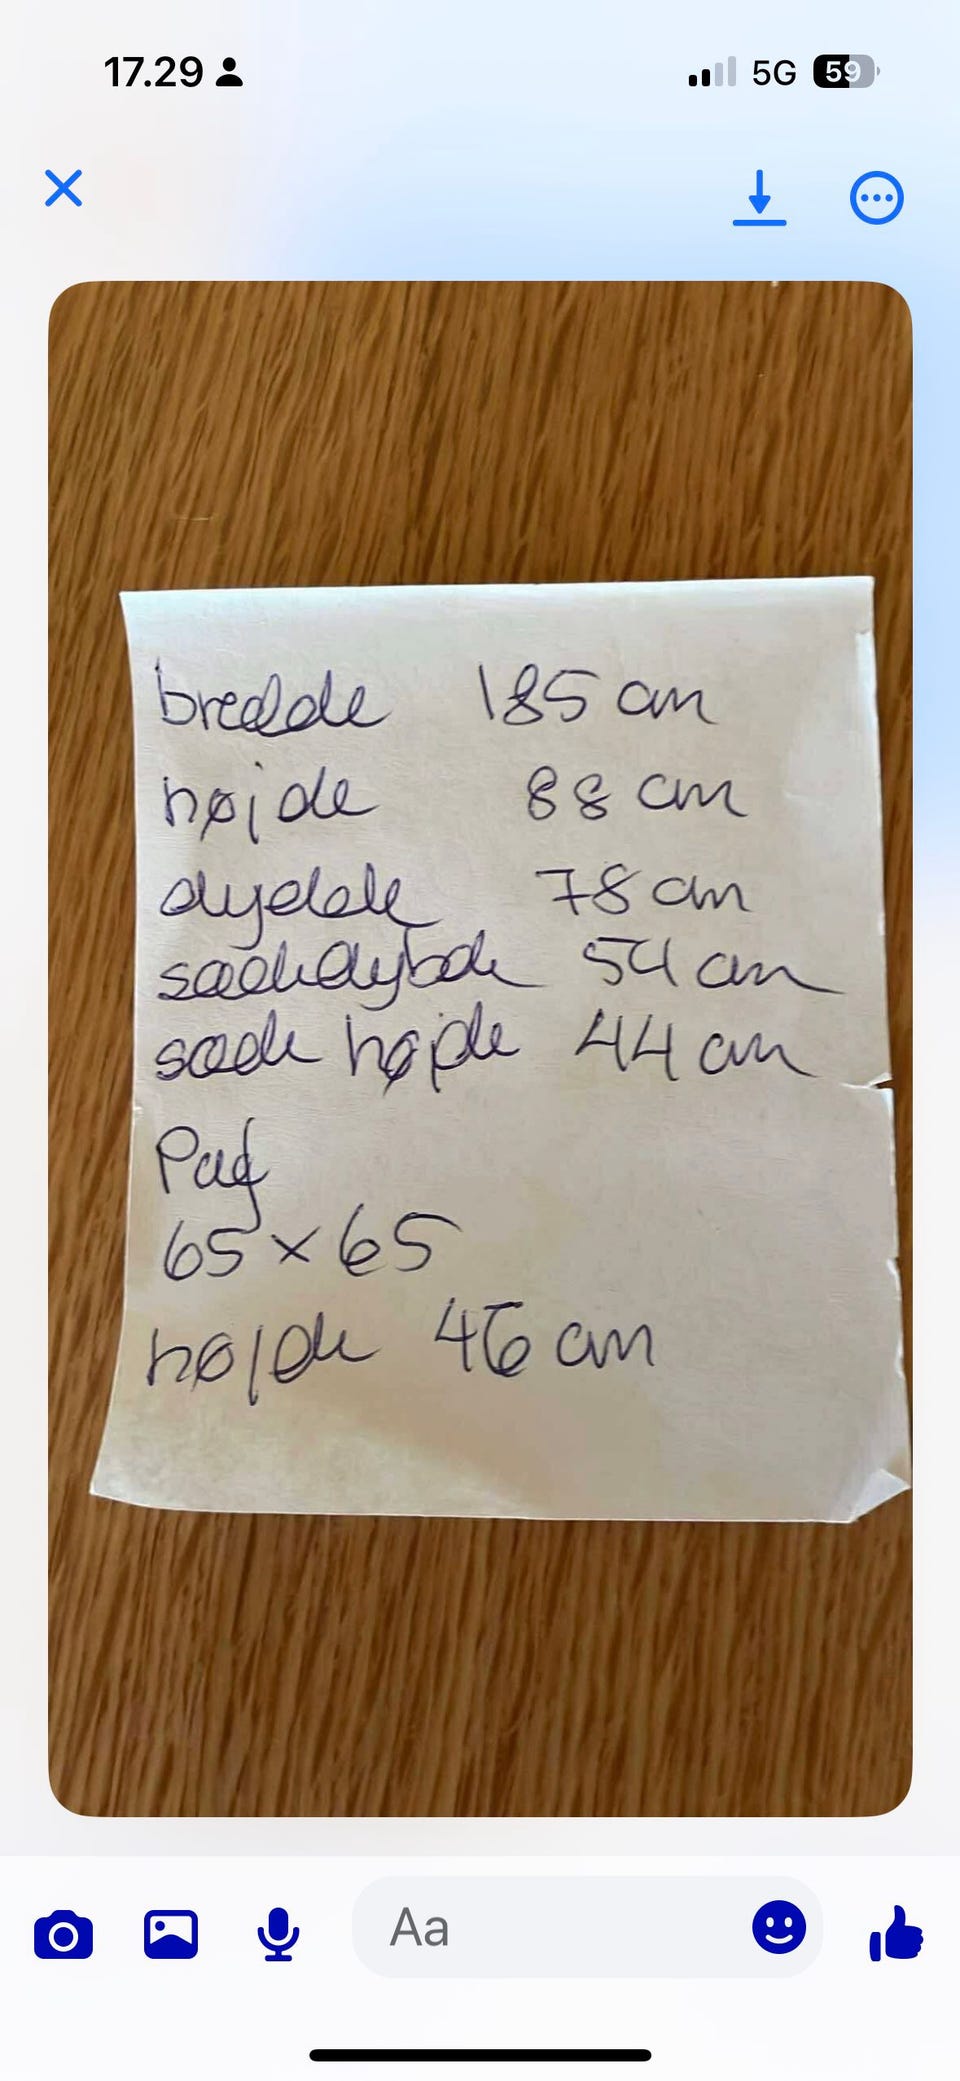 17.29
5G
59
bredde 185 cm
højde 88 cm
dybde 78 cm
sædedybde 54 cm
sæde højde 44 cm
Puf
65 x 65
højde 46 cm
Aa